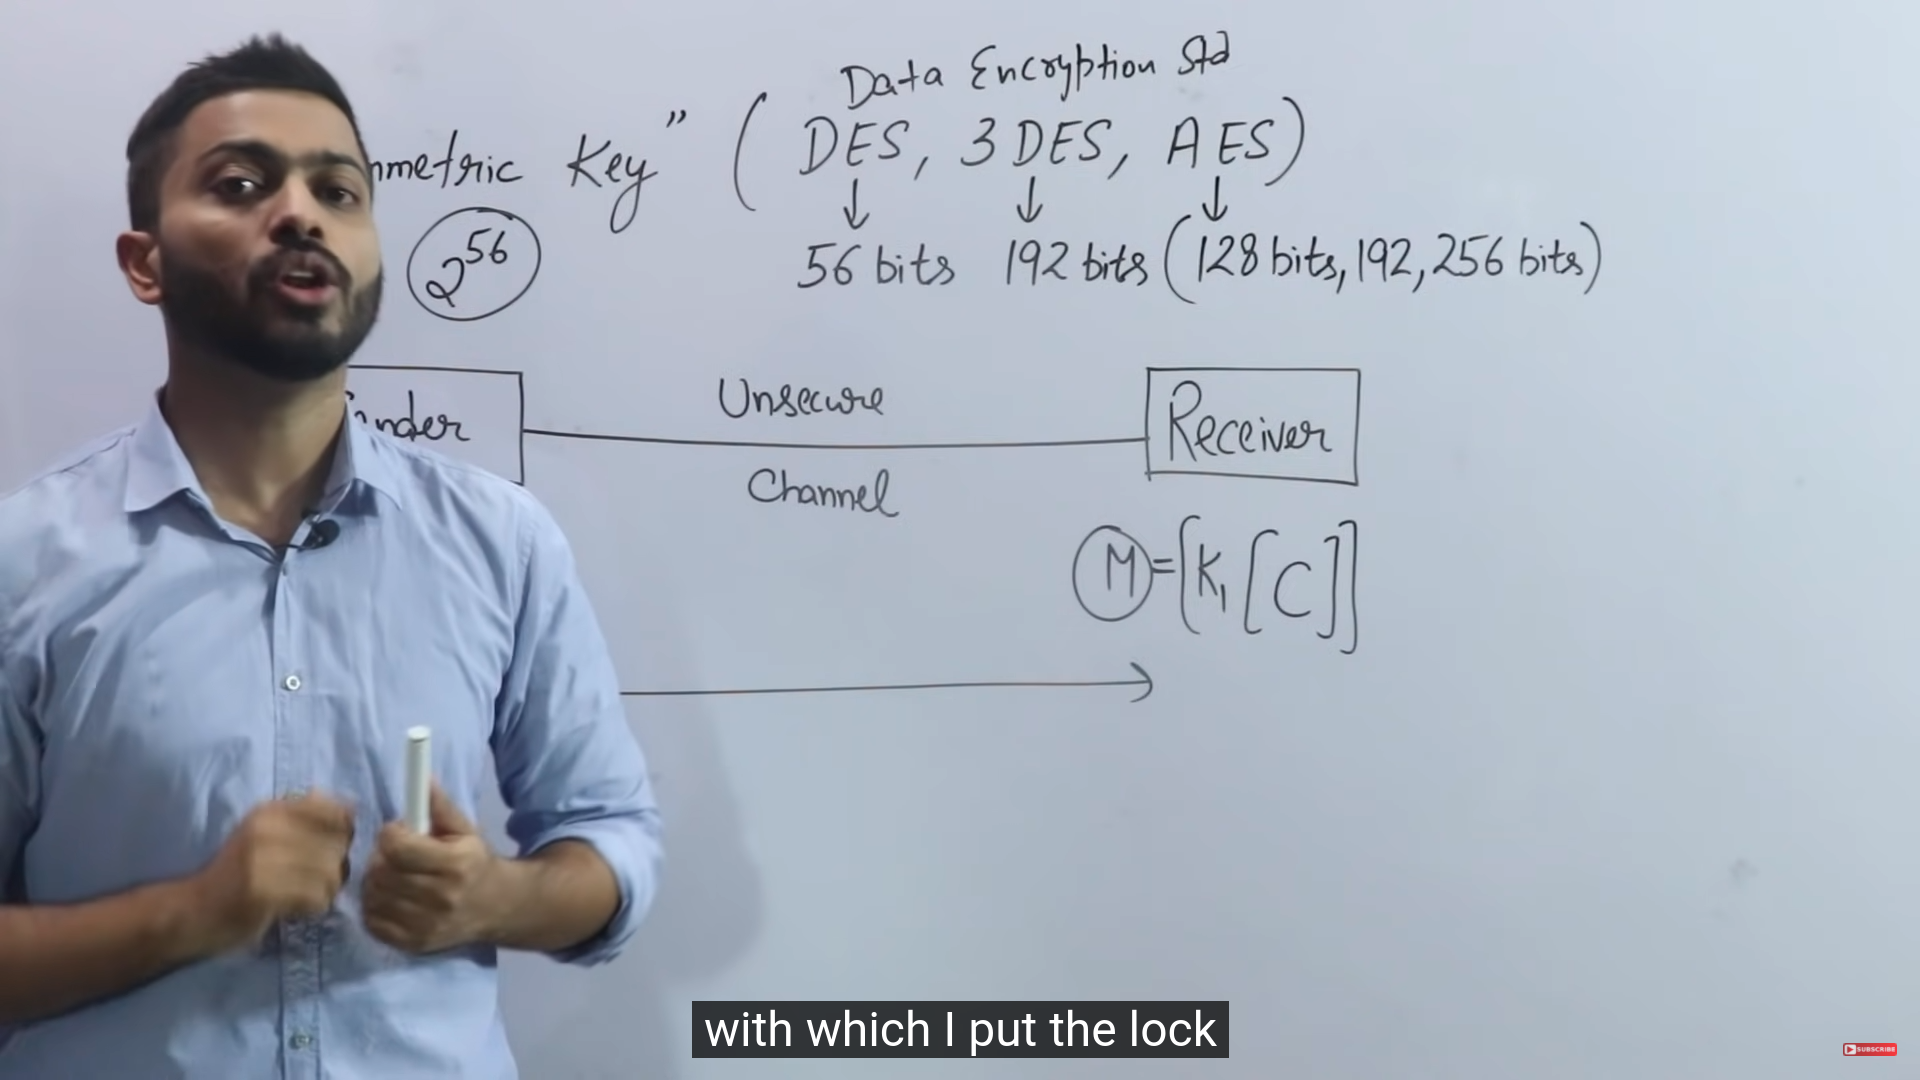 Data Encryption Std
mmetric Key" ( DES, 3DES, AES)
2^56
56 bits 192 bits (128 bits, 192, 256 bits)
Unsecure
nder
Receiver
Channel
M = [K₁ [C]]
with which I put the lock
SUBSCRIBE